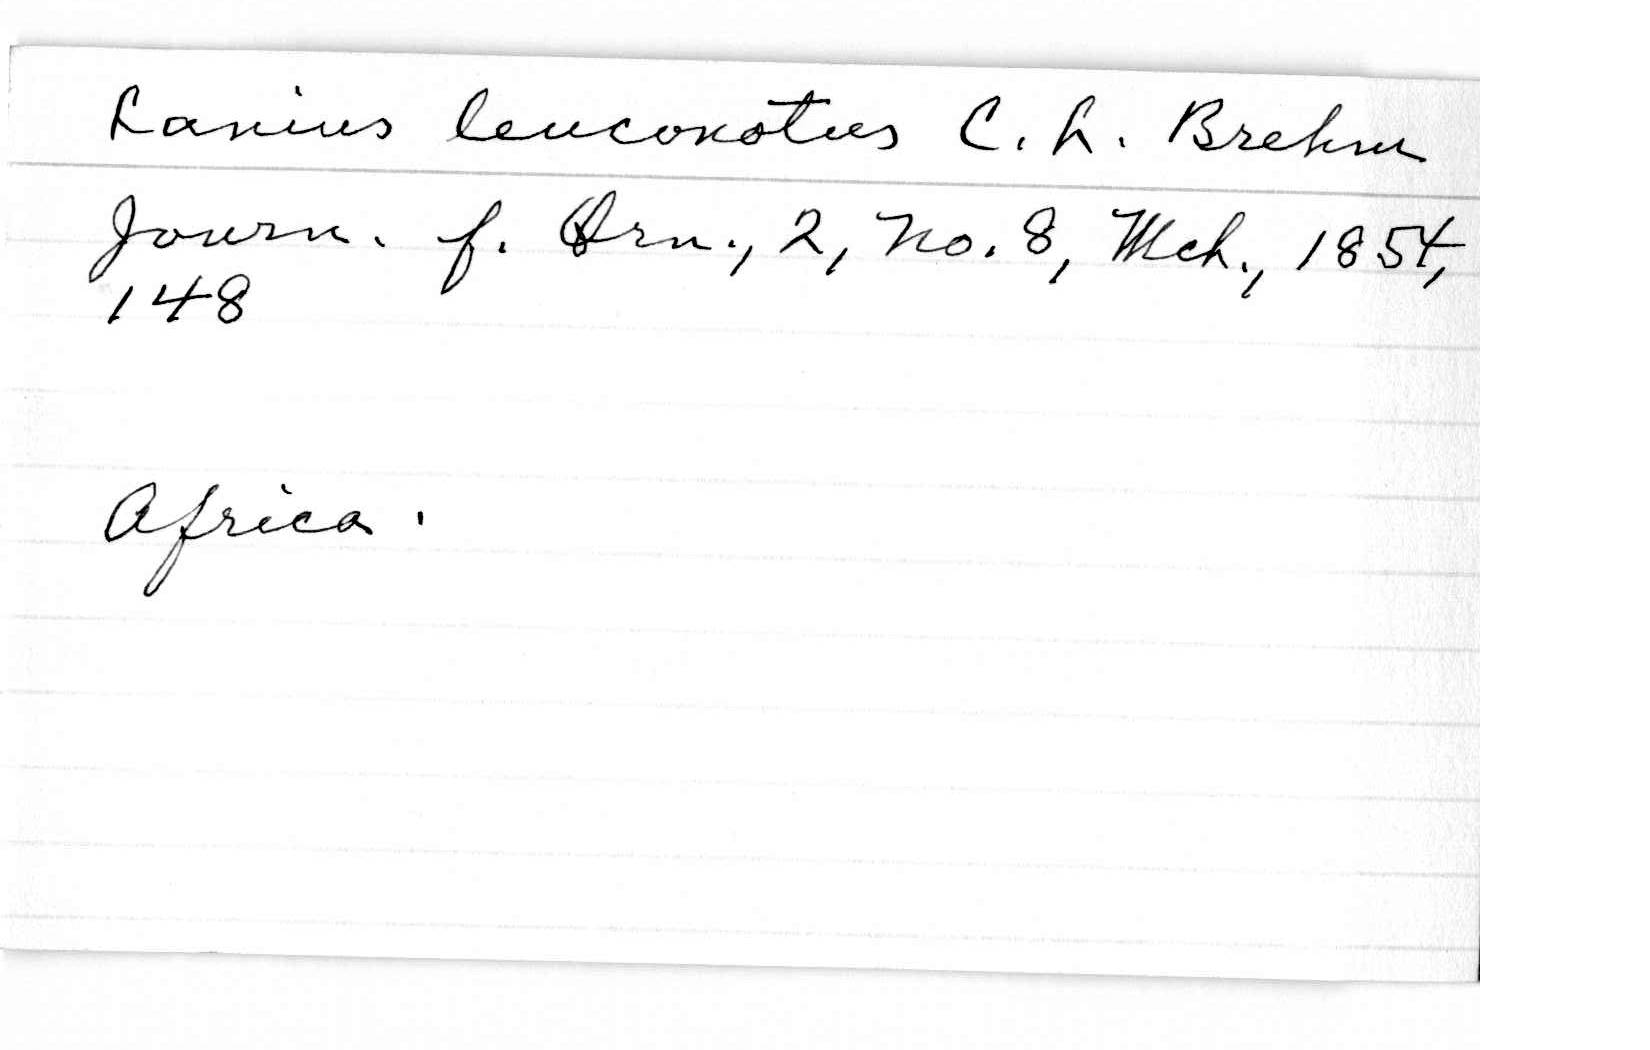 Lanius leuconotus C. L. Brehm
Journ. f. Orn., 2, No. 8, Mch., 1854,
148
Africa.